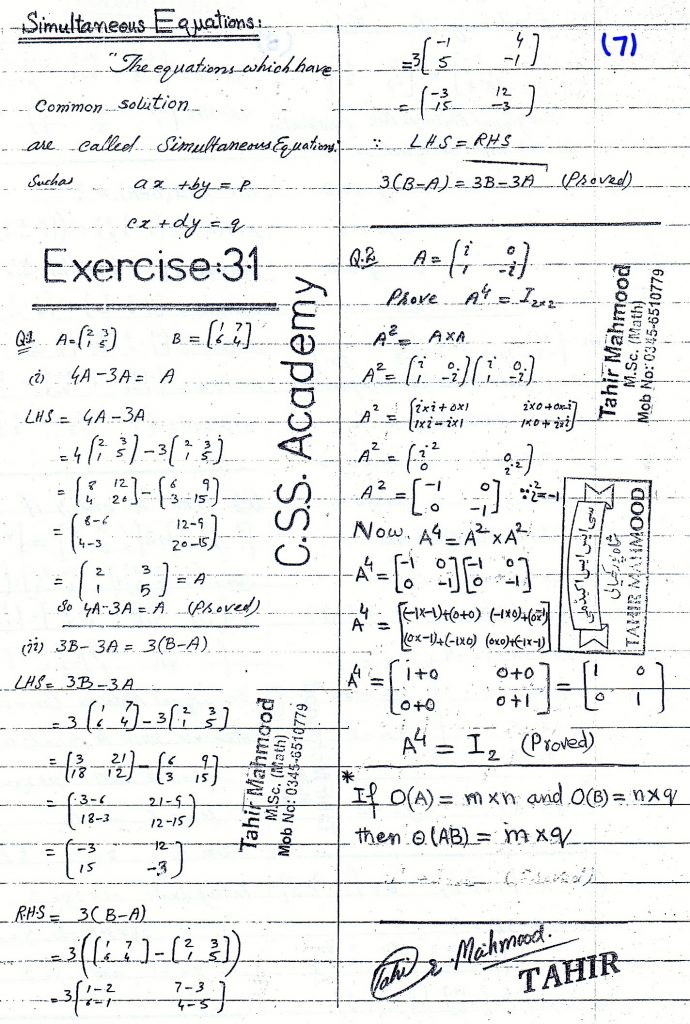 Simultaneous Equations:
"The equations which have
Common solution
are called Simultaneous Equations."
Such as ax + by = p
cx + dy = q
Exercise:31
Q1 A = [2 3; 1 5] B = [1 7; 6 4]
(i) 4A - 3A = A
LHS = 4A - 3A
= 4[2 3; 1 5] - 3[2 3; 1 5]
= [8 12; 4 20] - [6 9; 3 15]
= [8-6 12-9; 4-3 20-15]
= [2 3; 1 5] = A
So 4A - 3A = A (Proved)
(ii) 3B - 3A = 3(B-A)
LHS = 3B - 3A
= 3[1 7; 6 4] - 3[2 3; 1 5]
= [3 21; 18 12] - [6 9; 3 15]
= [3-6 21-9; 18-3 12-15]
= [-3 12; 15 -3]
RHS = 3(B-A)
= 3([1 7; 6 4] - [2 3; 1 5])
= 3[1-2 7-3; 6-1 4-5]
C.S.S. Academy
Tahir Mahmood
M.Sc. (Math)
Mob No: 0345-6510779
(7)
= 3[-1 4; 5 -1]
= [-3 12; 15 -3]
∵ LHS = RHS
3(B-A) = 3B - 3A (Proved)
Q.2 A = [i 0; 1 -i]
Prove A⁴ = I₂ₓ₂
A² = A×A
A² = [i 0; 1 -i][i 0; 1 -i]
A² = [i×i+0×1 i×0+0×-i; 1×i-i×1 1×0+i×i]
A² = [i² 0; 0 i²]
A² = [-1 0; 0 -1] ∵ i² = -1
Now A⁴ = A² × A²
A⁴ = [-1 0; 0 -1][-1 0; 0 -1]
A⁴ = [(-1×-1)+(0+0) (-1×0)+(0×-1); (0×-1)+(-1×0) (0×0)+(-1×-1)]
A⁴ = [1+0 0+0; 0+0 0+1] = [1 0; 0 1]
A⁴ = I₂ (Proved)
* If O(A) = m×n and O(B) = n×q
then O(AB) = m×q
Tahir Mahmood
M.Sc. (Math)
Mob No: 0345-6510779
سی ایس ایس اکیڈمی
TAHIR MAHMOOD
Tahir Mahmood.
TAHIR